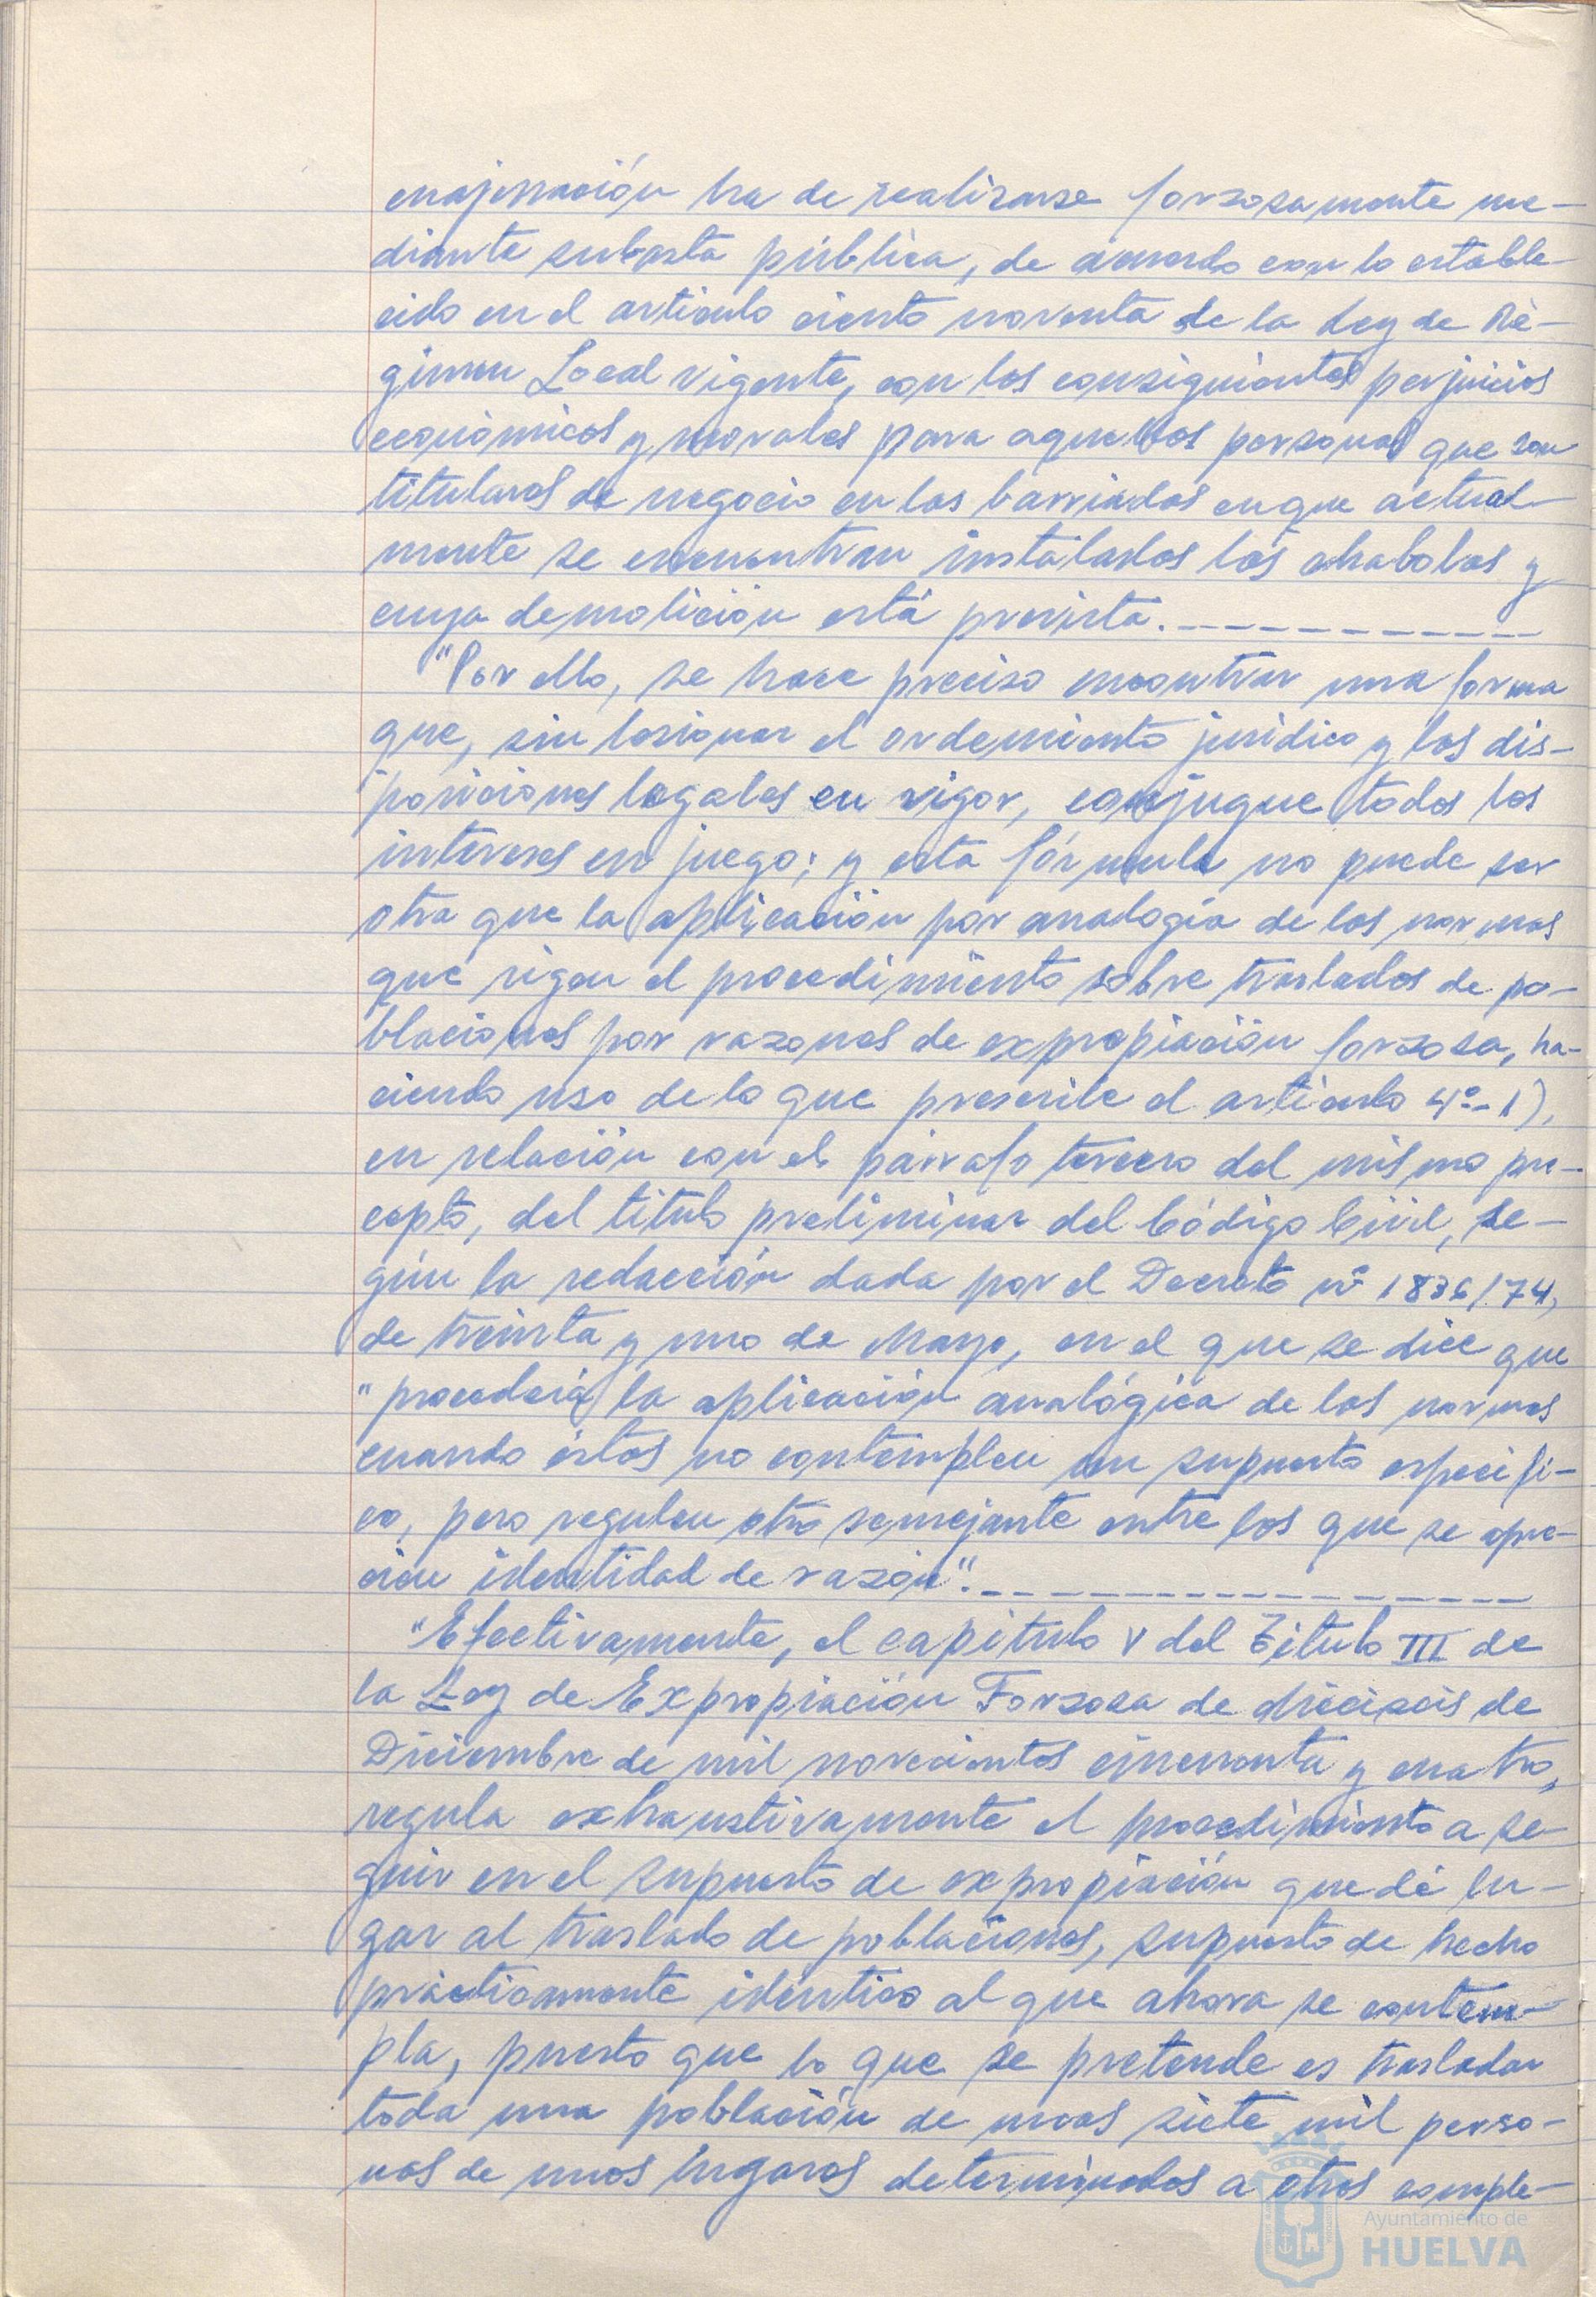 enajenación ha de realizarse forzosamente me-
diante subasta pública, de acuerdo con lo estable-
cido en el artículo ciento noventa de la Ley de Ré-
gimen Local vigente, con los consiguientes perjuicios
económicos y morales para aquellos personas que son
titulares de negocio en las barriadas en que actual-
mente se encuentran instalados las chabolas y
cuya demolición está prevista.
"Por ello, se hace preciso encontrar una forma
que, sin lesionar el ordemiento jurídico y las dis-
posiciones legales en vigor, conjugue todos los
intereses en juego; y esta fórmula no puede ser
otra que la aplicación por analogía de las normas
que rigen el procedimiento sobre traslados de po-
blaciones por razones de expropiación forzosa, ha-
ciendo uso de lo que prescribe el artículo 4º-1),
en relación con el párrafo tercero del mismo pre-
cepto, del título preliminar del Código Civil, se-
gún la redacción dada por el Decreto nº 1836/74,
de treinta y uno de Mayo, en el que se dice que
"procederá la aplicación analógica de las normas
cuando éstas no contemplen un supuesto específi-
co, pero regulen otro semejante entre los que se apre-
cie identidad de razón".
"Efectivamente, el capítulo V del Título III de
la Ley de Expropiación Forzosa de dieciseis de
Diciembre de mil novecientos cincuenta y cuatro,
regula exhaustivamente el procedimiento a se-
guir en el supuesto de expropiación que dé lu-
gar al traslado de poblaciones, supuesto de hecho
prácticamente idéntico al que ahora se contem-
pla, puesto que lo que se pretende es trasladar
toda una población de unas siete mil perso-
nas de unos lugares determinados a otros comple-
Ayuntamiento de
HUELVA